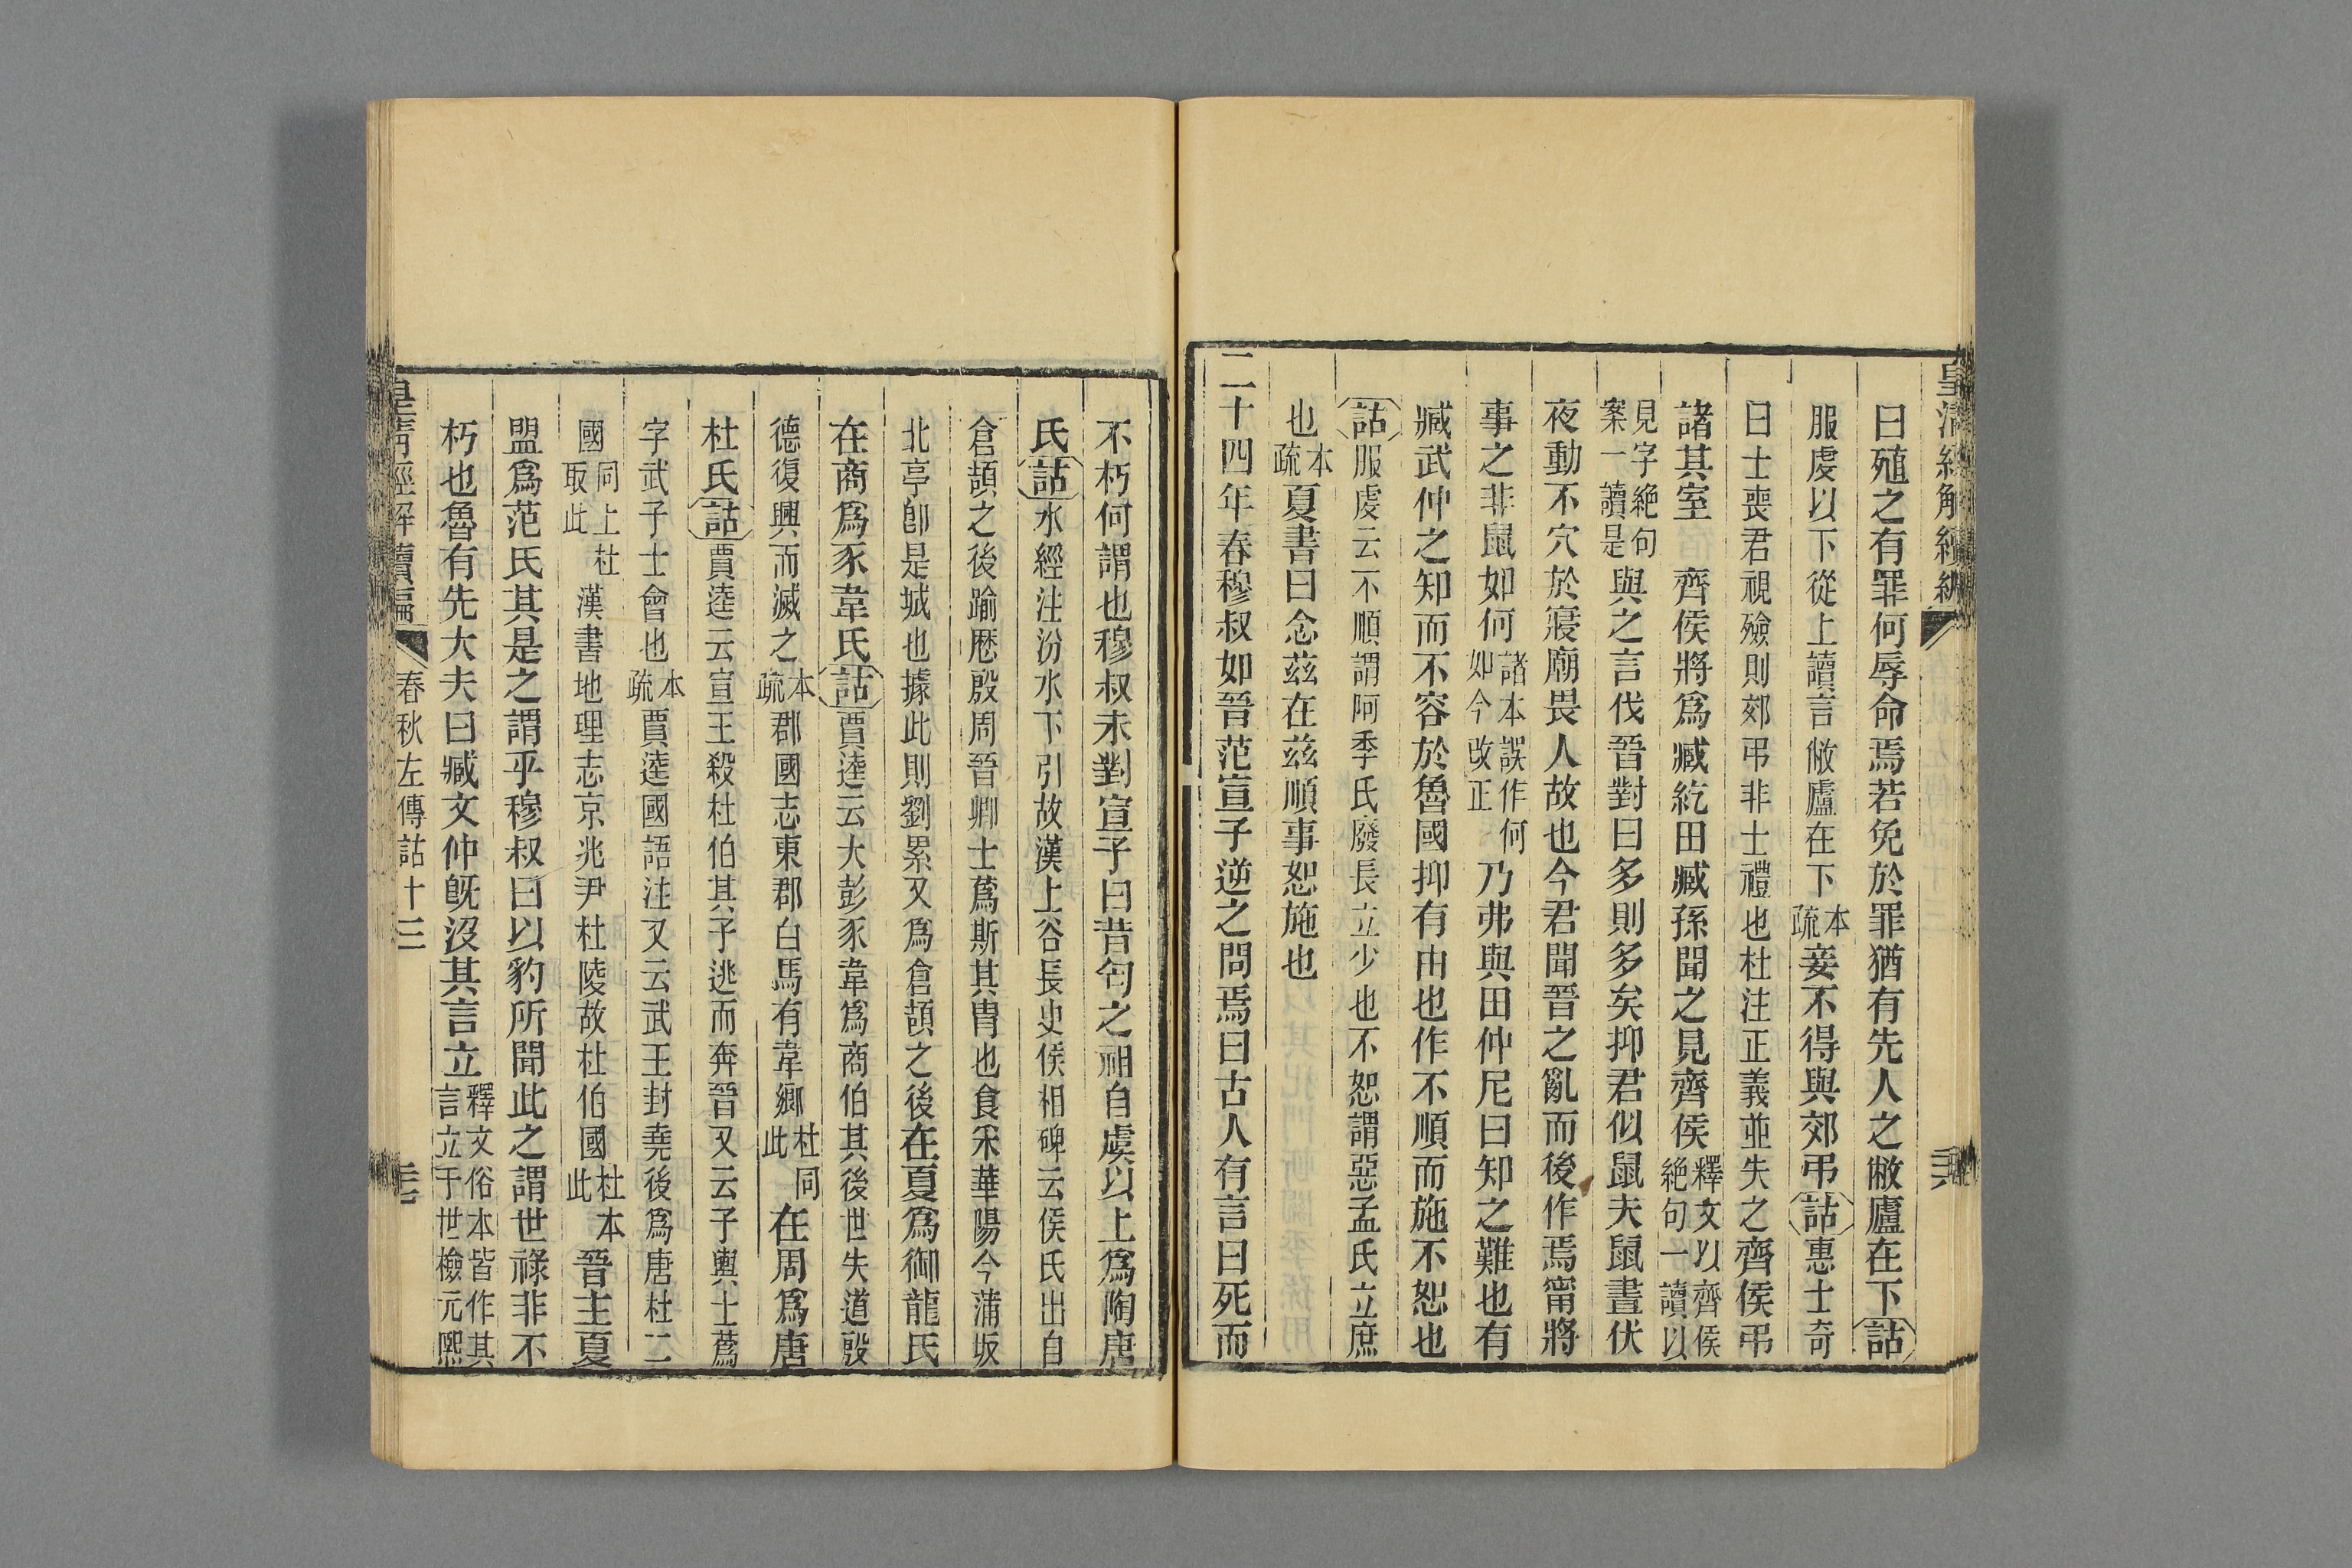 皇清經解續編
曰殖之有罪何辱命焉若免於罪猶有先人之敝廬在下詁
服虔以下從上讀言敝廬在下本疏妾不得與郊弔詁惠士奇
曰士喪君視殮則郊弔非士禮也杜注正義並失之齊侯弔
諸其室 齊侯將爲臧紇田臧孫聞之見齊侯釋文以齊侯絶句一讀以
見字絶句案一讀是與之言伐晉對曰多則多矣抑君似鼠夫鼠晝伏
夜動不穴於寢廟畏人故也今君聞晉之亂而後作焉甯將
事之非鼠如何諸本誤作何如今改正乃弗與田仲尼曰知之難也有
臧武仲之知而不容於魯國抑有由也作不順而施不恕也
詁服虔云不順謂阿季氏廢長立少也不恕謂惡孟氏立庶
也本疏夏書曰念茲在茲順事恕施也
二十四年春穆叔如晉范宣子逆之問焉曰古人有言曰死而
不朽何謂也穆叔未對宣子曰昔匄之祖自虞以上爲陶唐
氏詁水經注汾水下引故漢上谷長史侯相碑云侯氏出自
倉頡之後踰歷殷周晉卿士蔿斯其胄也食采華陽今蒲坂
北亭卽是城也據此則劉累又爲倉頡之後在夏爲御龍氏
在商爲豕韋氏詁賈逵云大彭豕韋爲商伯其後世失道殷
德復興而滅之本疏郡國志東郡白馬有韋鄉杜同此在周爲唐
杜氏詁賈逵云宣王殺杜伯其子逃而奔晉又云子輿士蔿
字武子士會也本疏賈逵國語注又云武王封堯後爲唐杜二
國同上杜取此漢書地理志京兆尹杜陵故杜伯國杜本此晉主夏
盟爲范氏其是之謂乎穆叔曰以豹所聞此之謂世祿非不
朽也魯有先大夫曰臧文仲旣沒其言立釋文俗本皆作其言立于世檢元熙
皇清經解續編 春秋左傳詁十三